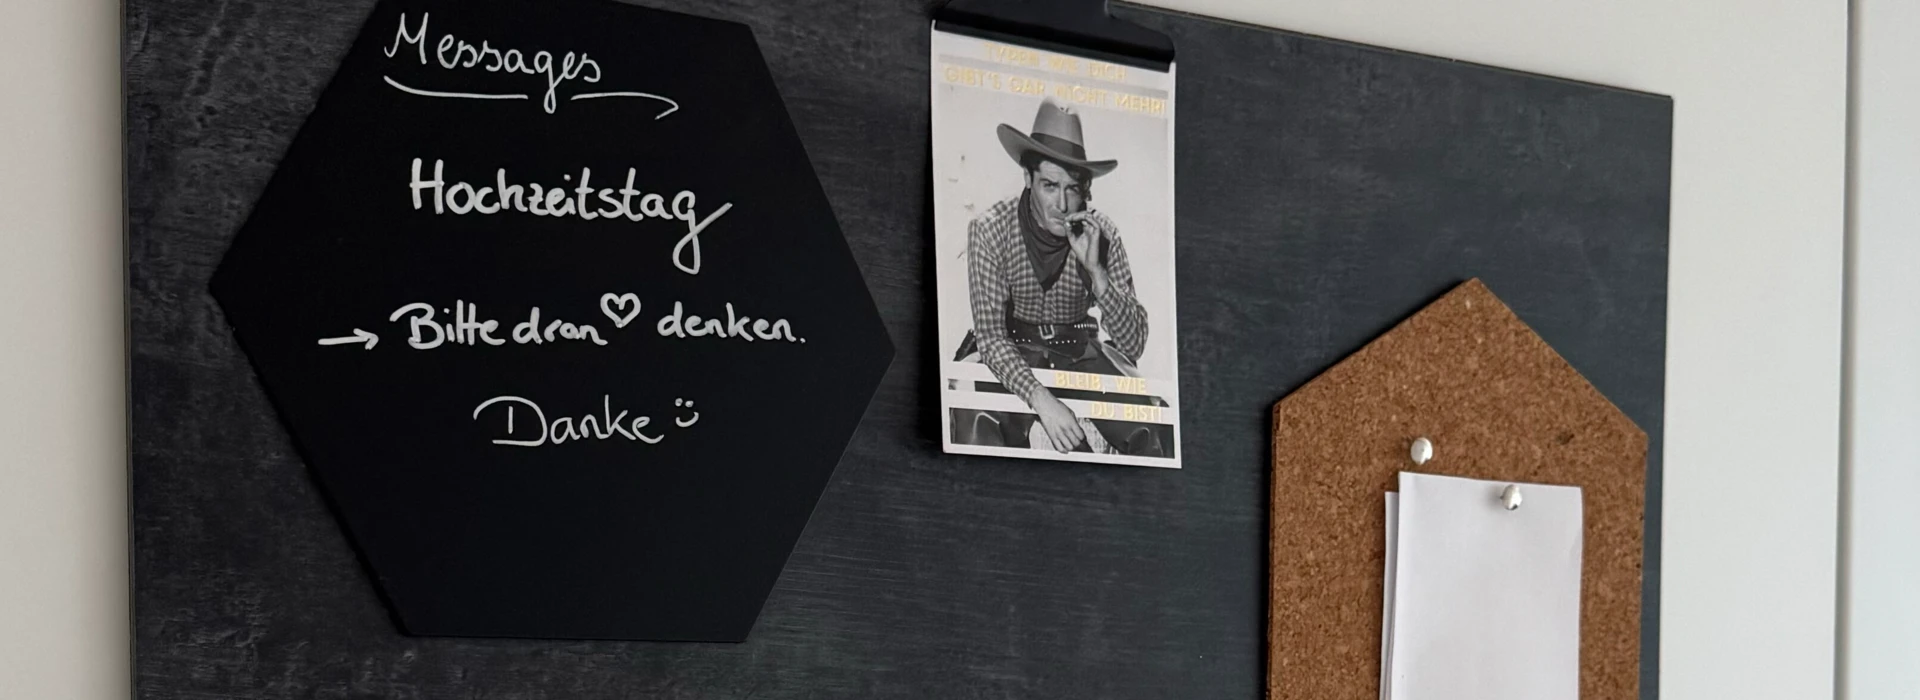 Messages
Hochzeitstag
→ Bitte dran ♡ denken.
Danke :)
TYPEN WIE DICH
GIBT'S GAR NICHT MEHR!
BLEIB, WIE
DU BIST!